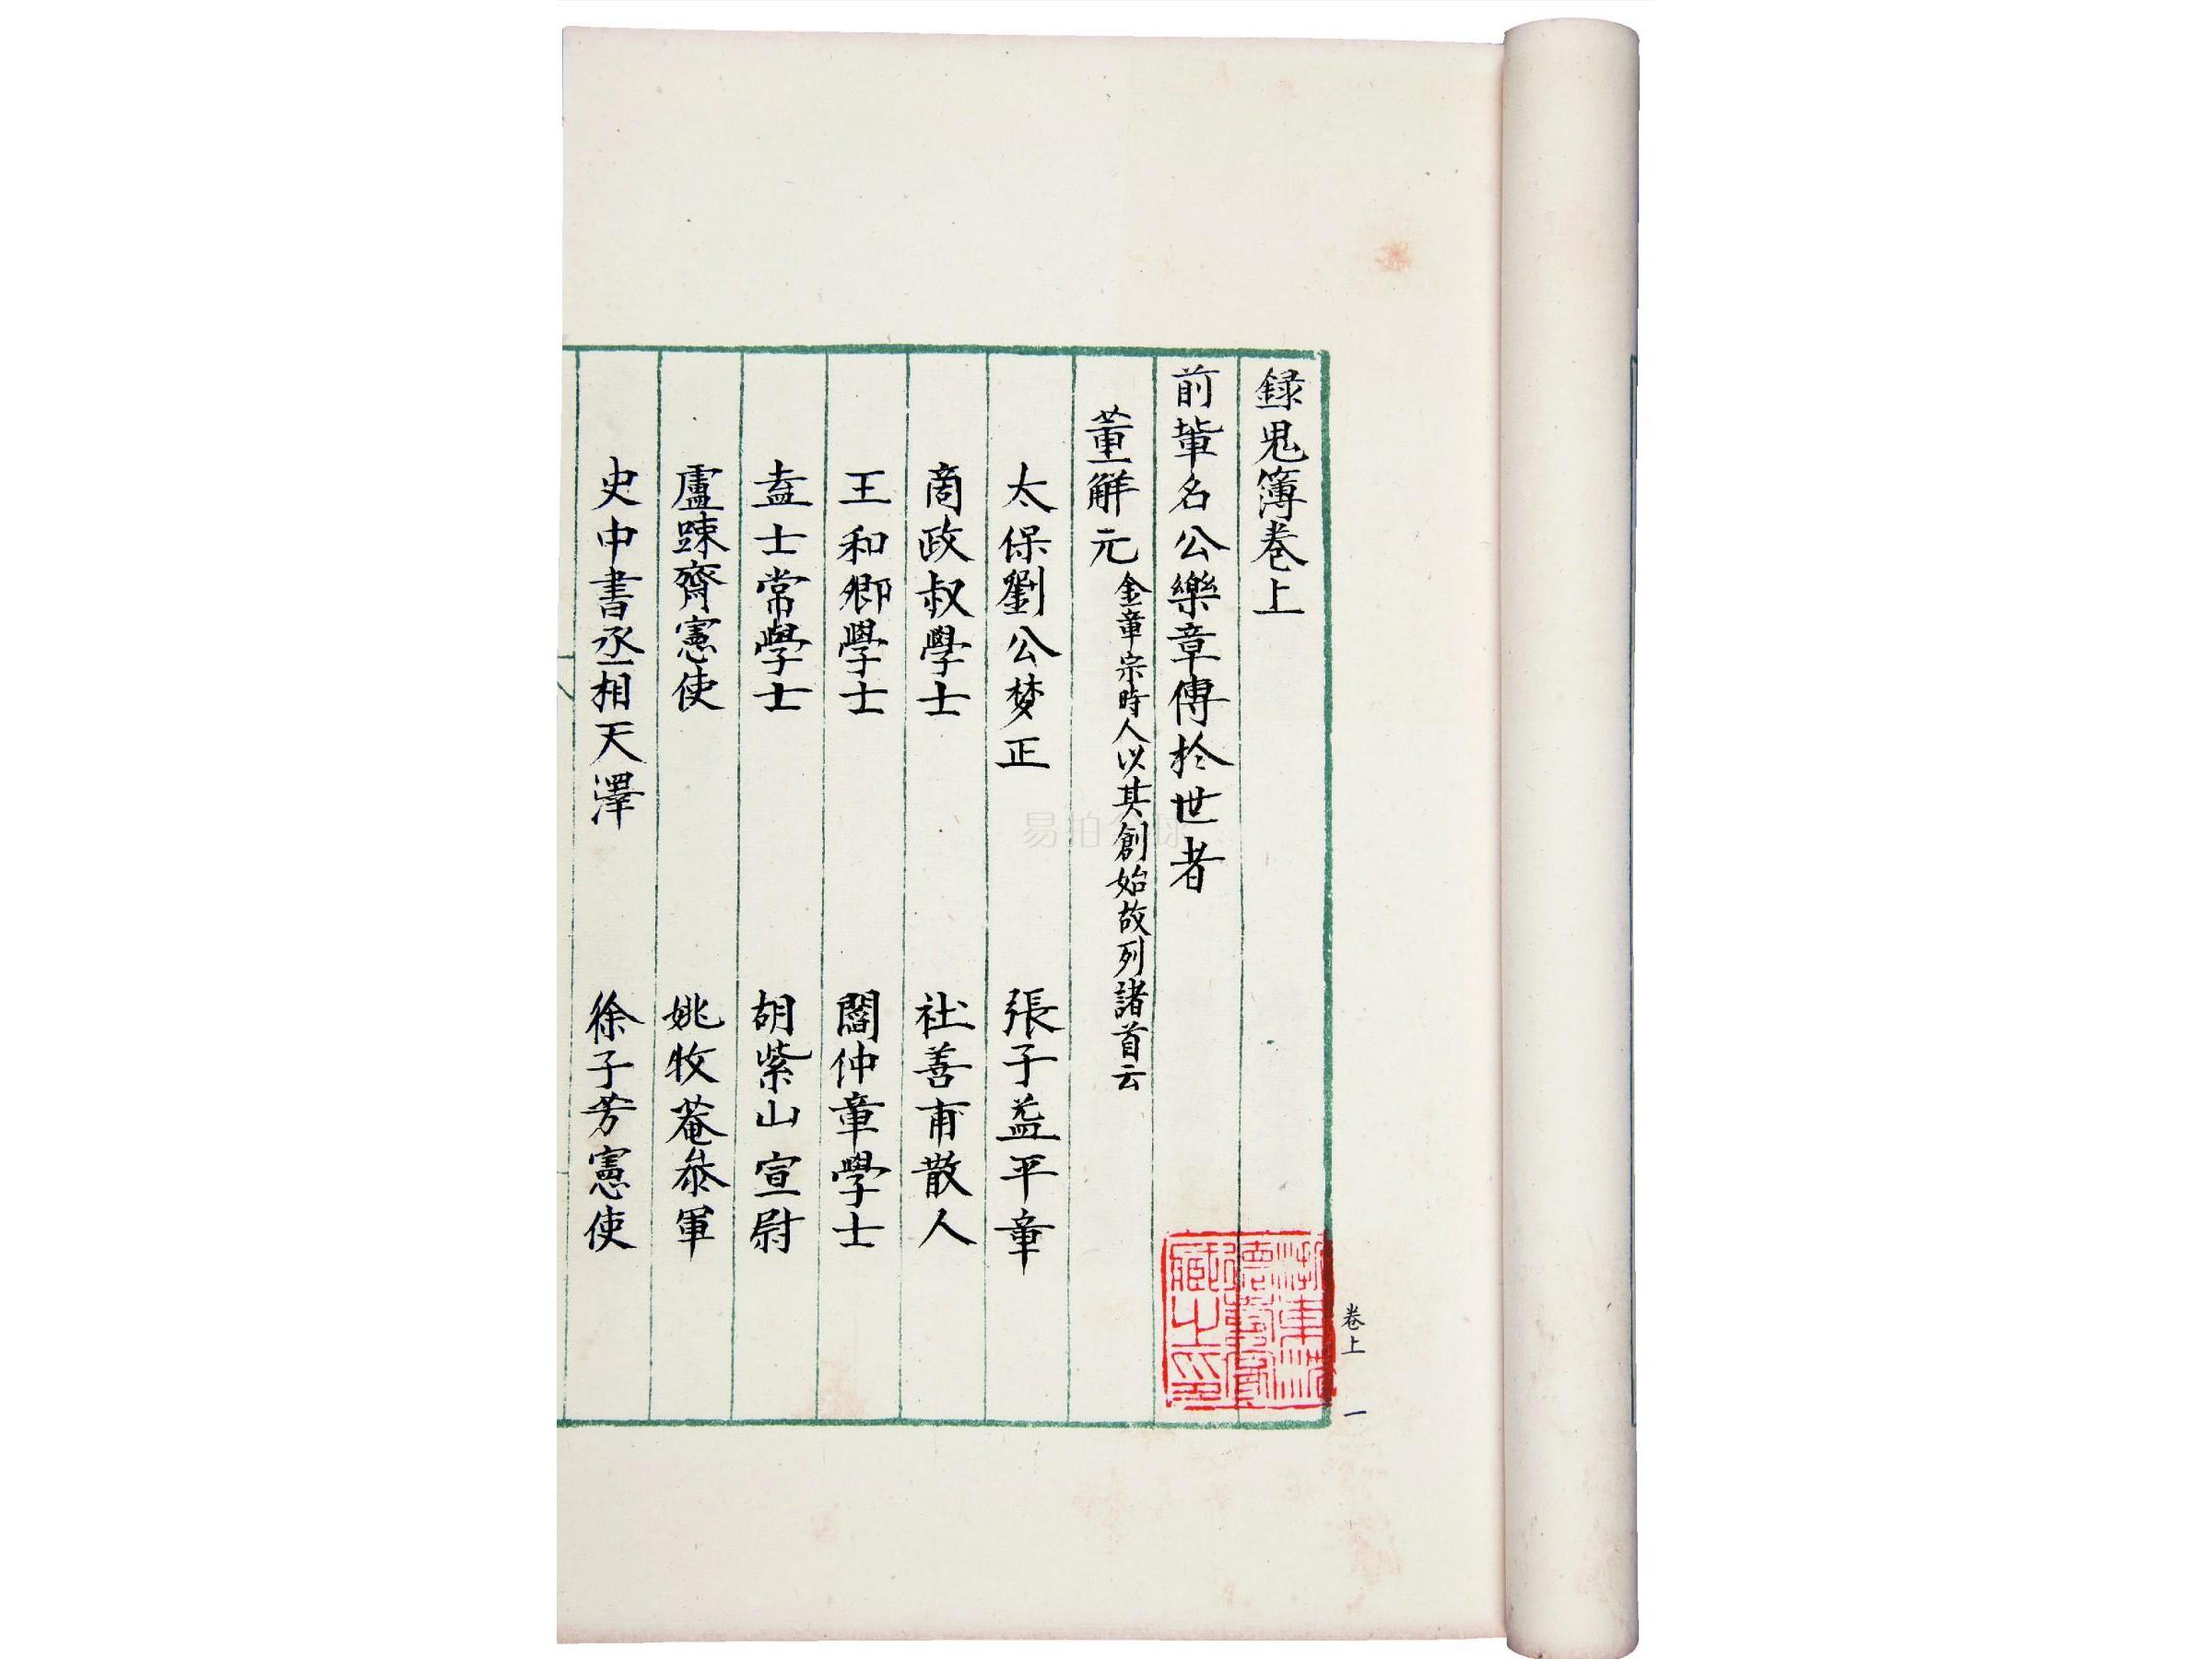 録鬼簿卷上
前輩名公樂章傳於世者
董解元 金章宗時人以其創始故列諸首云
太保劉公梦正 張子益平章
商政叔學士 社善甫散人
王和卿學士 閻仲章學士
盍士常學士 胡紫山宣尉
盧踈齋憲使 姚牧菴叅軍
史中書丞相天澤 徐子芳憲使
卷上
一
易拍全球